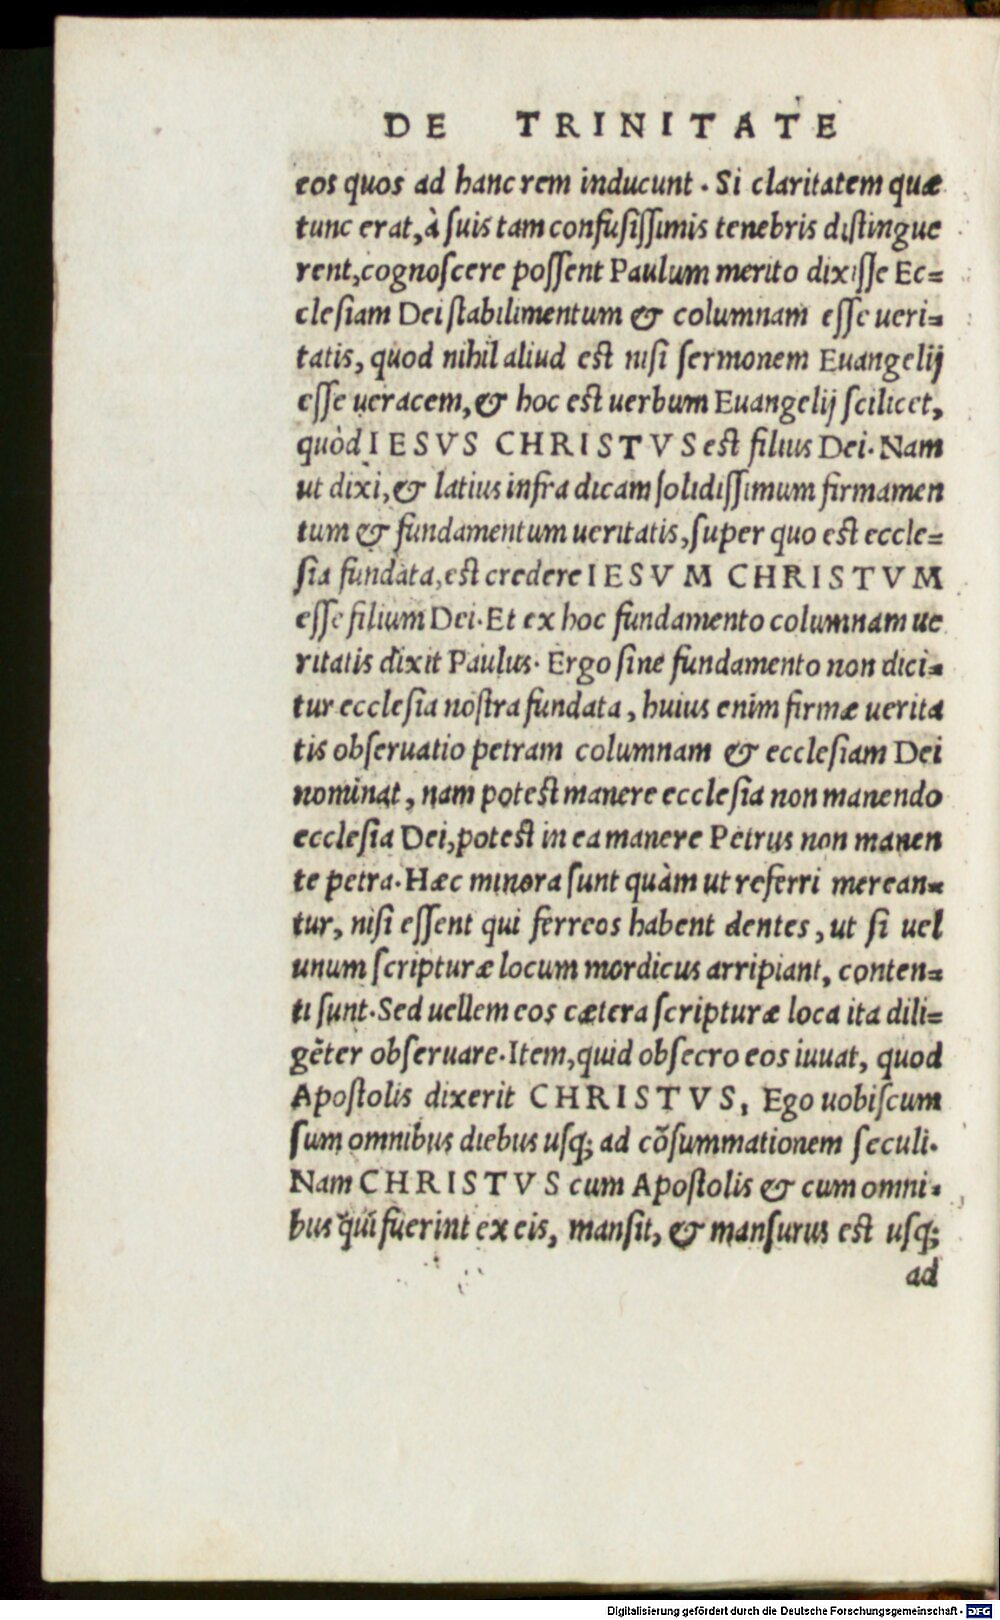 DE TRINITATE
eos quos ad hanc rem inducunt. Si claritatem quæ
tunc erat, à suis tam confusissimis tenebris distingue
rent, cognoscere possent Paulum merito dixisse Ec=
clesiam Dei stabilimentum & columnam esse ueri=
tatis, quod nihil aliud est nisi sermonem Euangelij
esse ueracem, & hoc est uerbum Euangelij scilicet,
quòd IESVS CHRISTVS est filius Dei. Nam
ut dixi, & latius infra dicam solidissimum firmamen
tum & fundamentum ueritatis, super quo est eccle=
sia fundata, est credere IESVM CHRISTVM
esse filium Dei. Et ex hoc fundamento columnam ue
ritatis dixit Paulus. Ergo sine fundamento non dici=
tur ecclesia nostra fundata, huius enim firmæ uerita
tis obseruatio petram columnam & ecclesiam Dei
nominat, nam potest manere ecclesia non manendo
ecclesia Dei, potest in ea manere Petrus non manen
te petra. Hæc minora sunt quàm ut referri merean=
tur, nisi essent qui ferreos habent dentes, ut si uel
unum scripturæ locum mordicus arripiant, conten=
ti sunt. Sed uellem eos cætera scripturæ loca ita dili=
gēter obseruare. Item, quid obsecro eos iuuat, quod
Apostolis dixerit CHRISTVS, Ego uobiscum
sum omnibus diebus usq; ad cōsummationem seculi.
Nam CHRISTVS cum Apostolis & cum omni=
bus qui fuerint ex eis, mansit, & mansurus est usq;
ad
Digitalisierung gefördert durch die Deutsche Forschungsgemeinschaft - DFG